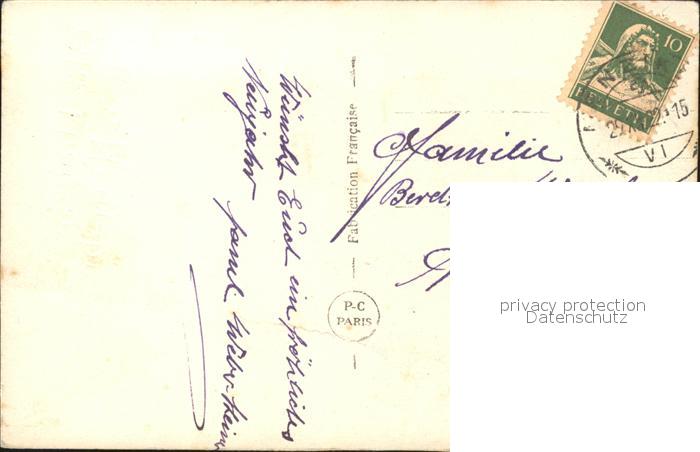 Wünscht Euch ein fröhliches
Neujahr
Famil. Weber
Fabrication Française
P-C
PARIS
Familie
10
HELVETIA
15
VI
privacy protection
Datenschutz